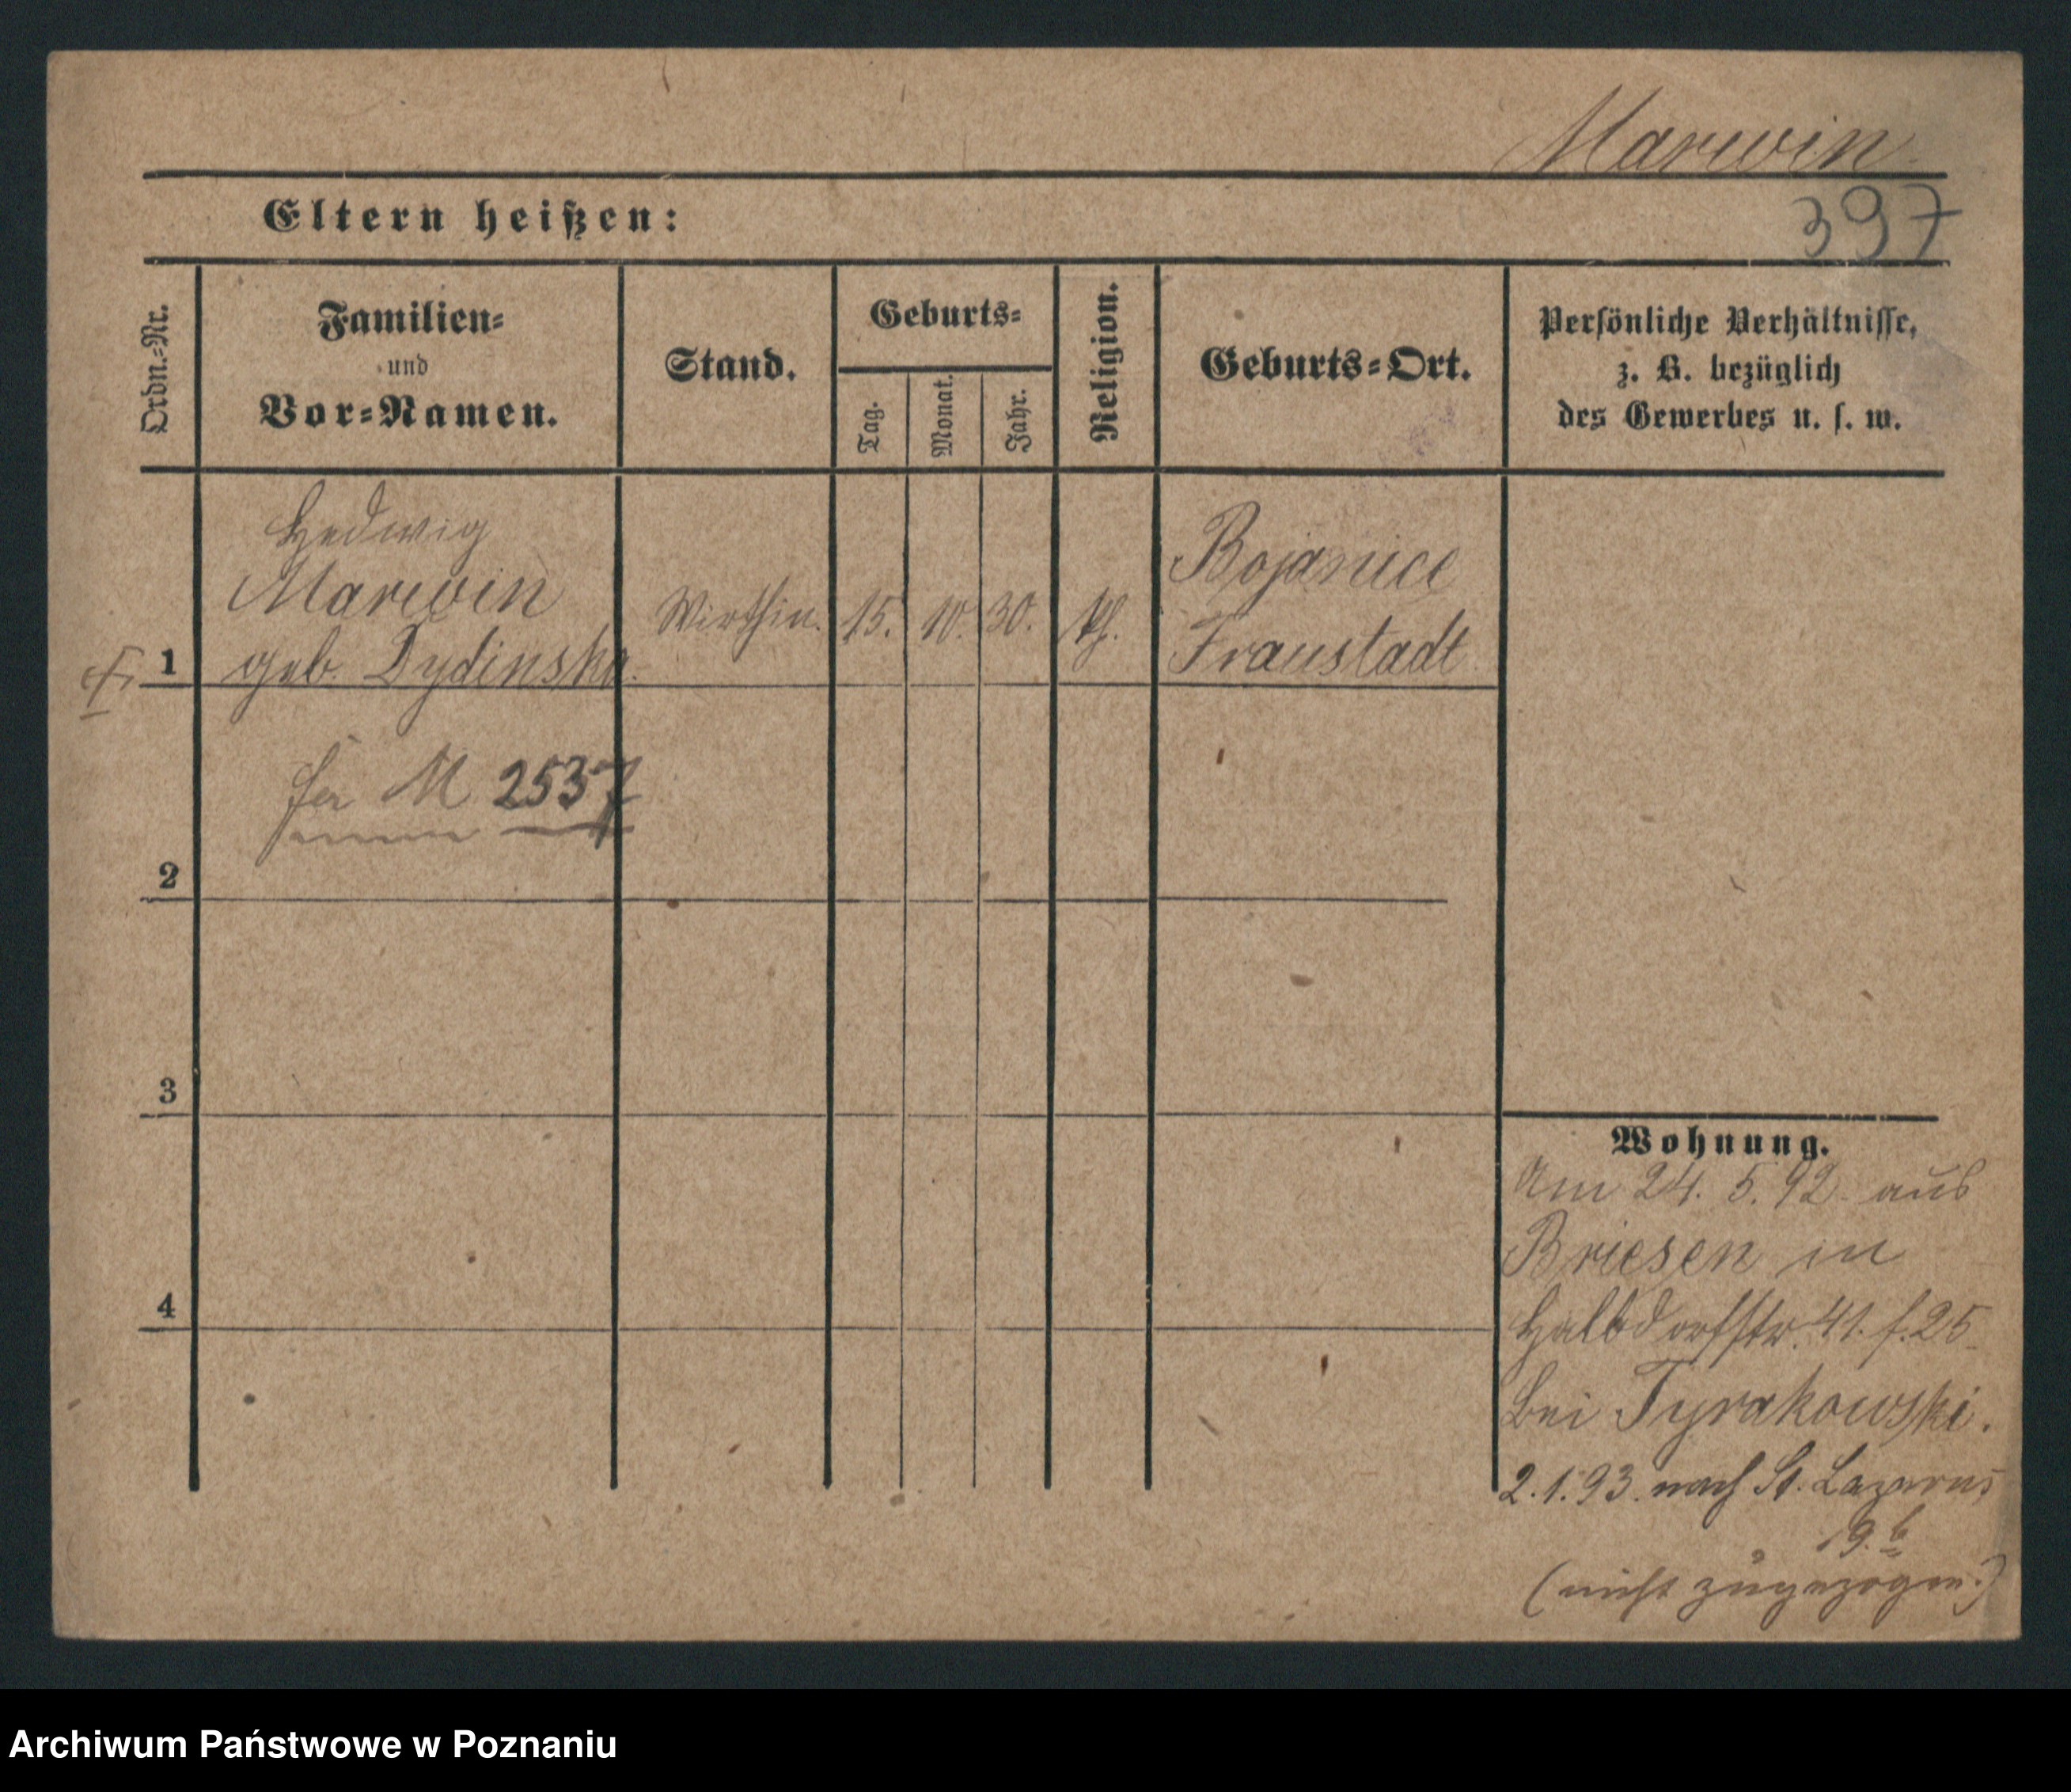 Marwin
397
Eltern heißen:
Ordn.-Nr.
Familien-
und
Vor-Namen.
Stand.
Geburts-
Tag.
Monat.
Jahr.
Religion.
Geburts-Ort.
Persönliche Verhältnisse,
z. B. bezüglich
des Gewerbes u. s. w.
1
Hedwig
Marwin
geb. Dydinska.
Wirthin.
15.
10.
30.
kth.
Bojanice
Fraustadt
M 2537
2
3
4
Wohnung.
Am 24. 5. 92. aus
Briesen in
Halbdorfstr. 41. f. 25
bei Tyrakowski.
2.1.93. nach St. Lazarus
9.b
(nicht zugezogen.)
Archiwum Państwowe w Poznaniu